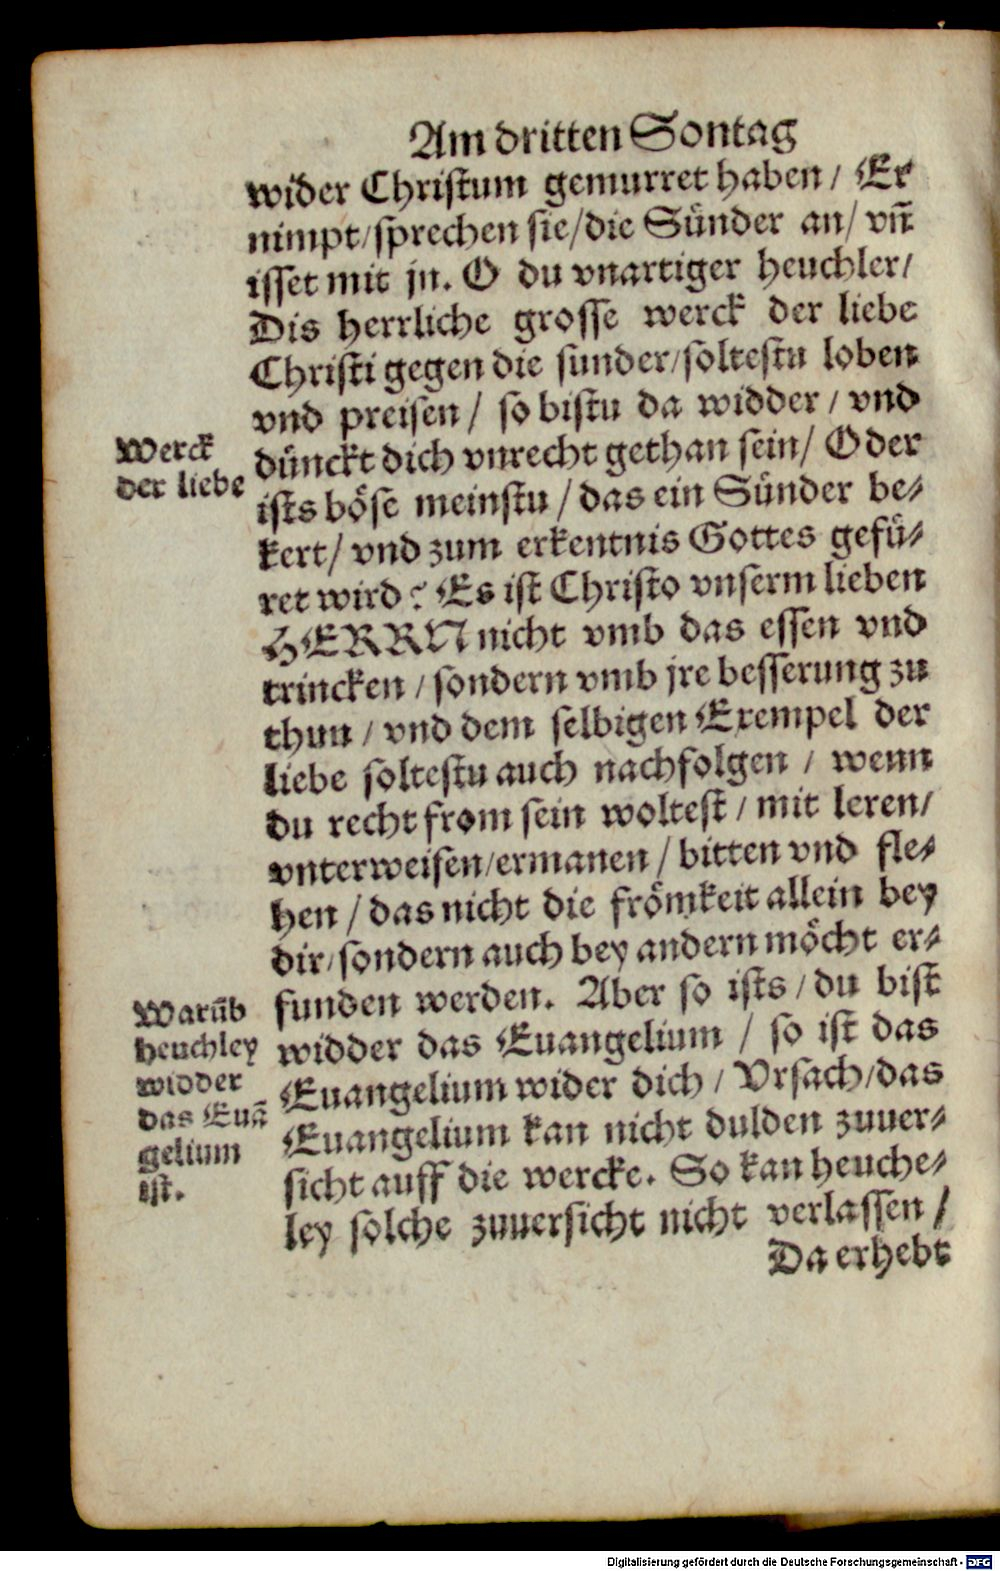 Am dritten Sontag
wider Christum gemurret haben / Er
nimpt / sprechen sie / die Sünder an / vñ
isset mit jn. O du vnartiger heuchler /
Dis herrliche grosse werck der liebe
Christi gegen die sunder / soltestu loben
vnd preisen / so bistu da widder / vnd
Werck
der liebe
dünckt dich vnrecht gethan sein / Oder
ists böse meinstu / das ein Sünder be⸗
kert / vnd zum erkentnis Gottes gefü⸗
ret wird? Es ist Christo vnserm lieben
HERRN nicht vmb das essen vnd
trincken / sondern vmb jre besserung zu
thun / vnd dem selbigen Exempel der
liebe soltestu auch nachfolgen / wenn
du recht from sein woltest / mit leren /
vnterweisen / ermanen / bitten vnd fle⸗
hen / das nicht die frömkeit allein bey
dir / sondern auch bey andern möcht er⸗
funden werden. Aber so ists / du bist
widder das Euangelium / so ist das
Euangelium wider dich / Vrsach / das
Euangelium kan nicht dulden zuuer⸗
sicht auff die wercke. So kan heuche⸗
ley solche zuuersicht nicht verlassen /
Warũb
heuchley
widder
das Euã
gelium
ist.
Da erhebt
Digitalisierung gefördert durch die Deutsche Forschungsgemeinschaft - DFG